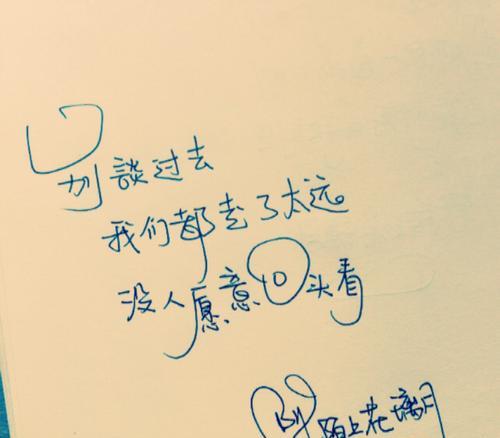 别談过去
我们都走了太远
没人愿意回头看
By 陌上花漓月